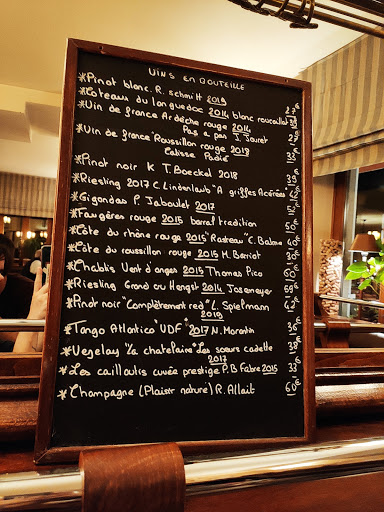 VINS EN BOUTEILLE
*Pinot blanc. R. schmitt 2019
*Coteaux du languedoc 2014 blanc roucaillat 38€
*Vin de france Ardèche rouge 2014
Pas a pas J. Jouret
*Vin de france "Roussillon rouge 2018 33€
Calisse Padié
*Pinot noir K T. Boeckel 2018 39€
*Riesling 2017 C. Lindenlaub "A griffes Acérées
*Gigondas P. Jaboulet 2017
*Faugères rouge 2015 barral tradition 50€
*Côte du rhône rouge 2015 "Rasteau" C. Balme
*Côte du roussillon rouge 2015 M. Barriot 30€
*Chablis Vent d'anges 2015 Thomas Pico 50€
*Riesling Grand cru Hengst 2014 Josmeyer 59€
*Pinot noir "Complètement red" L. Spielmann
2019
*Tango Atlantico "VDF" 2017 N. Morantin 36€
*Vezelay "La chatelaine" Les sœurs cadette 38€
2017
*Les cailloutis cuvée prestige P. B Fabre 2015 33€
*Champagne (Plaisir nature) R. Allait 60€